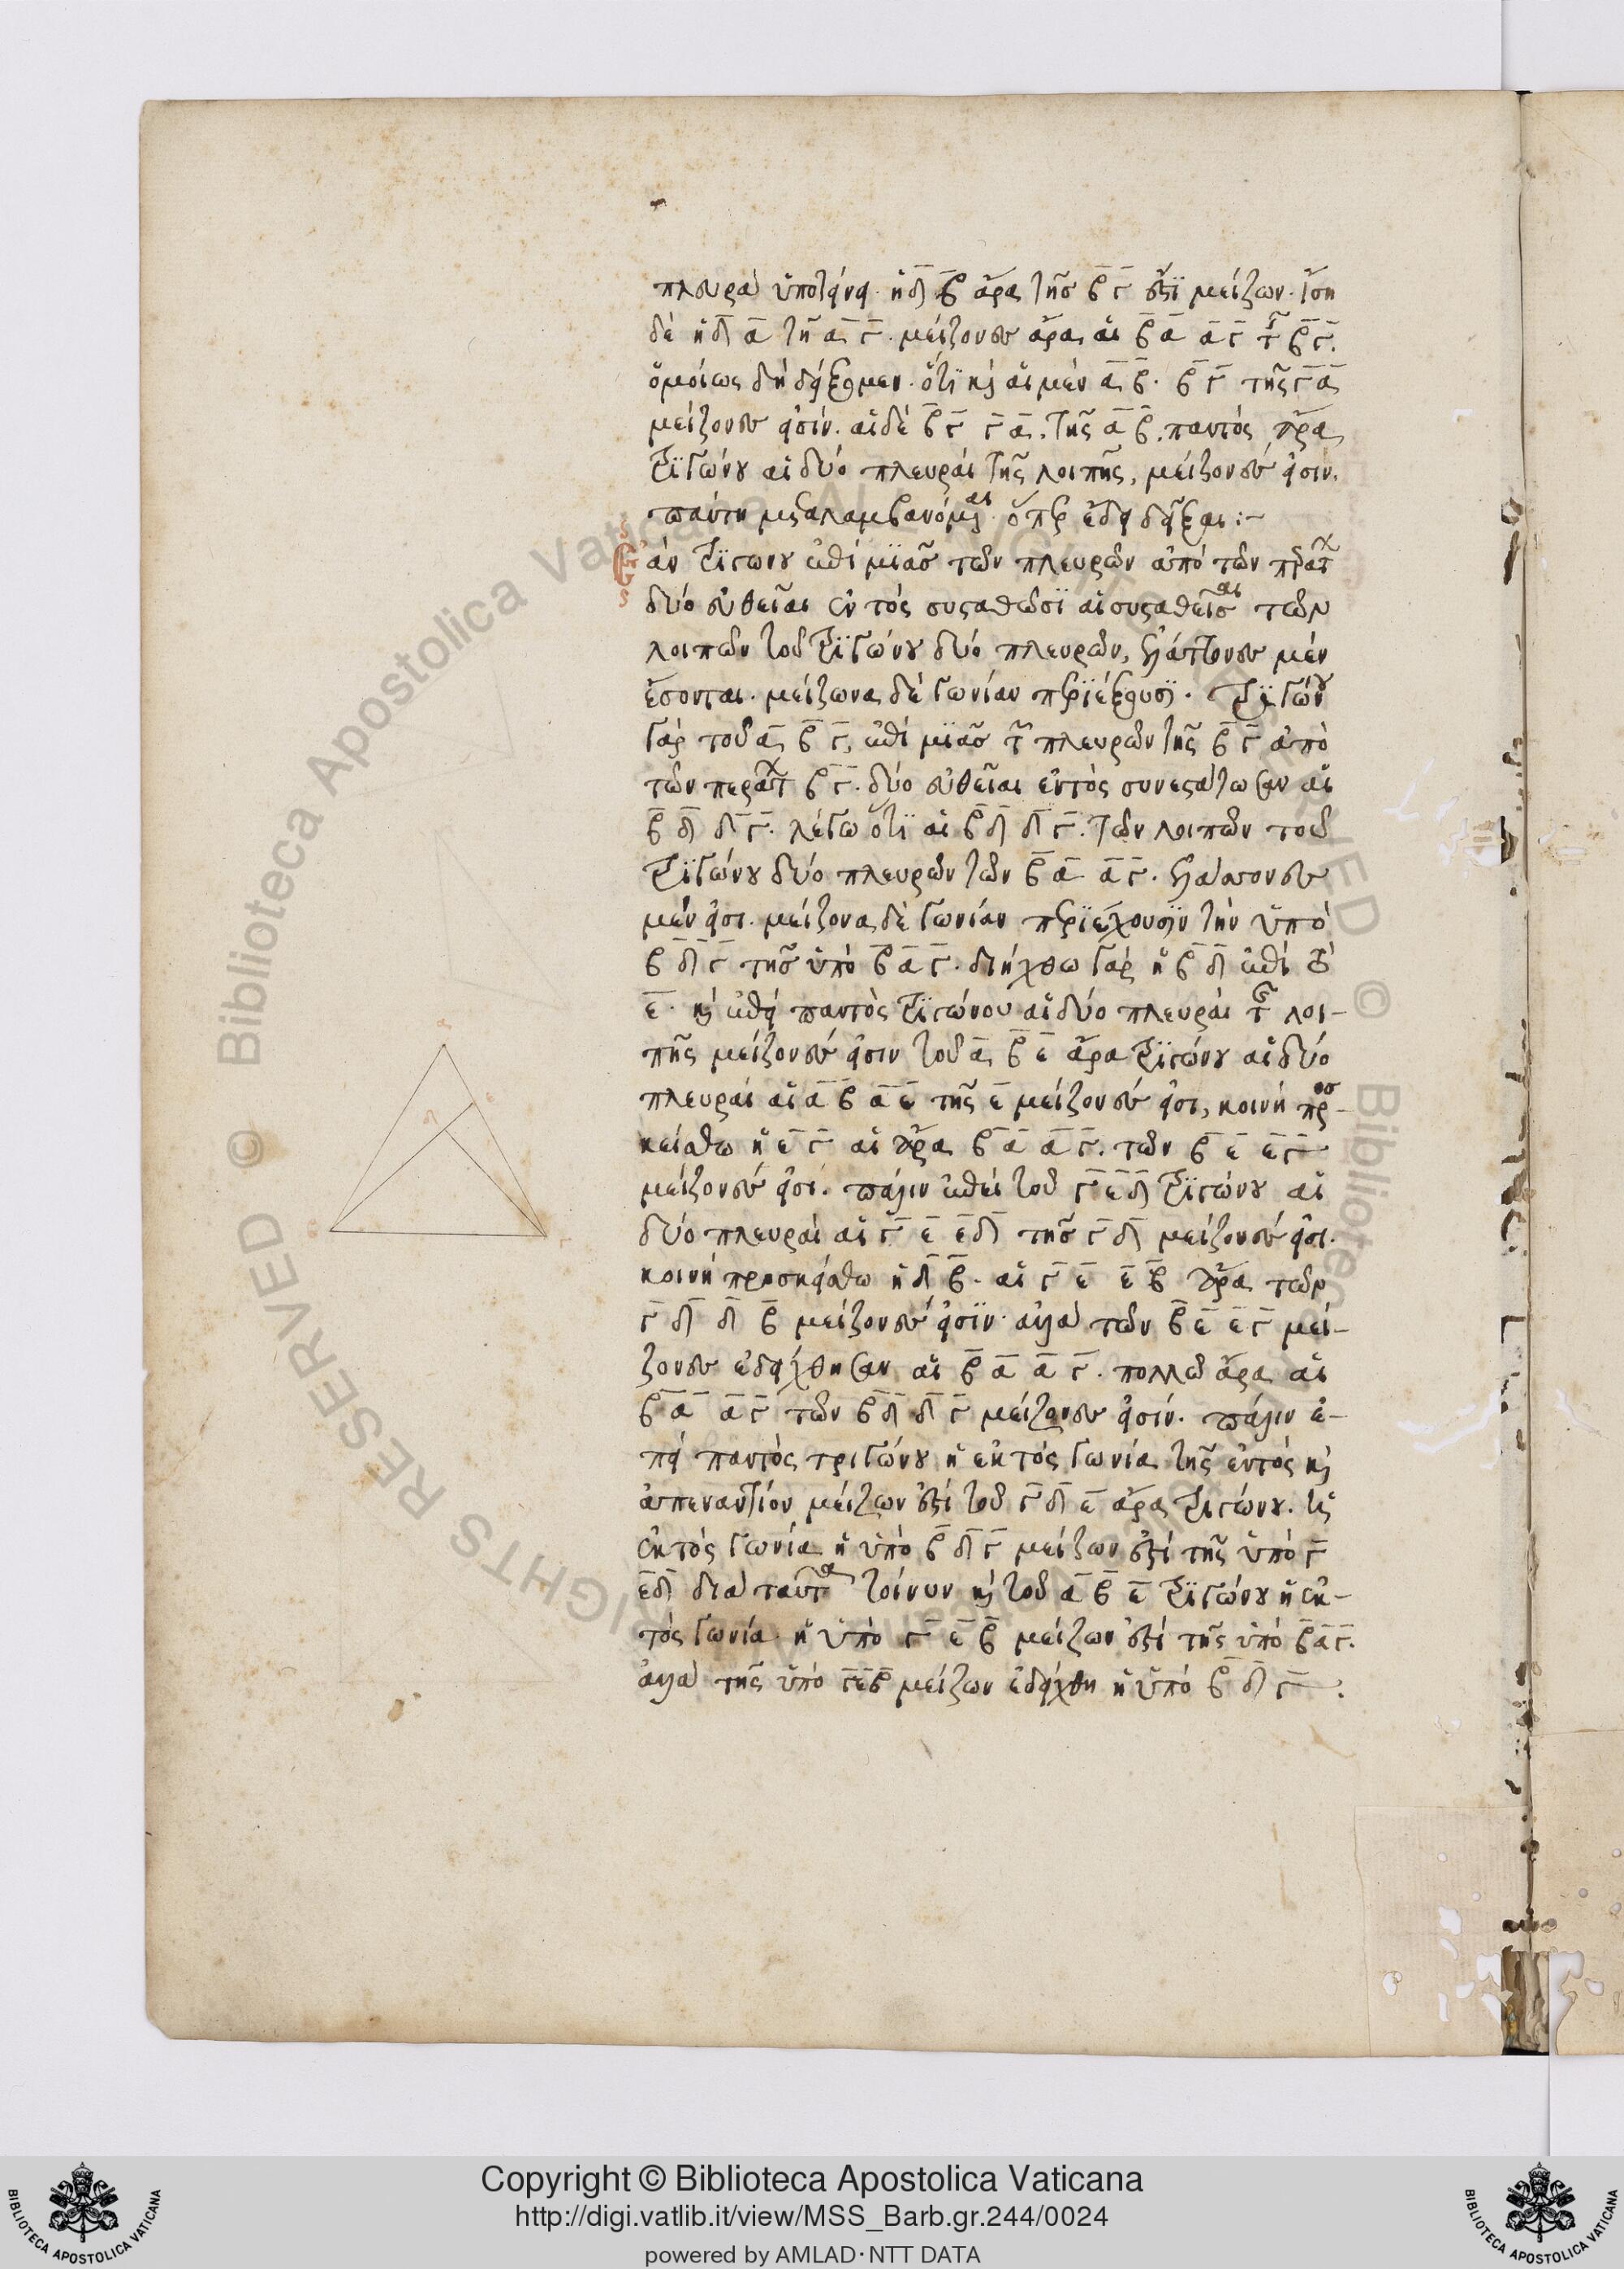 πλευρὰ ὑποτείνει· ἡ δ β ἄρα τῆς β γ ἐστὶ μείζων· ἴση
δὲ ἡ δ α τῆ α γ· μείζονες ἄρα αἱ β α α γ τῆς β γ.
ὁμοίως δὴ δείξομεν· ὅτι καὶ αἱ μὲν α β· β γ τῆς γ α
μείζονες εἰσίν· αἱ δὲ β γ γ α, τῆς α β, παντὸς ἄρα
τριγώνου αἱ δύο πλευραὶ τῆς λοιπῆς, μείζονές εἰσιν.
πάντη μεταλαμβανόμεναι· ὅπερ ἔδει δεῖξαι :-
Ἐὰν τριγώνου ἐπὶ μιᾶς τῶν πλευρῶν ἀπὸ τῶν περάτων
δύο εὐθεῖαι ἐντὸς συσταθῶσι αἱ συσταθεῖσαι τῶν
λοιπῶν τοῦ τριγώνου δύο πλευρῶν, ἐλάττονες μὲν
ἔσονται· μείζωνα δὲ γωνίαν περιέξουσι· τριγώνου
γὰρ τοῦ α β γ, ἐπὶ μιᾶς τῶν πλευρῶν τῆς β γ ἀπὸ
τῶν περάτων β γ· δύο εὐθεῖαι ἐντὸς συνεστάτωσαν αἱ
β δ δ γ· λέγω ὅτι αἱ β δ δ γ· τῶν λοιπῶν τοῦ
τριγώνου δύο πλευρῶν τῶν β α α γ· ἐλάσσονες
μέν εἰσι· μείζονα δὲ γωνίαν περιέχουσιν τὴν ὑπὸ
β δ γ τῆς ὑπὸ β α γ· διήχθω γὰρ ἡ β δ ἐπὶ τὸ
ε· καὶ ἐπεὶ παντὸς τριγώνου αἱ δύο πλευραὶ τῆς λοι-
πῆς μείζονές εἰσιν τοῦ α β ε ἄρα τριγώνου αἱ δύο
πλευραὶ αἱ α β α ε τῆς ε μείζονές εἰσι, κοινὴ προσ-
κείσθω ἡ ε γ αἱ ἄρα β α α γ· τῶν β ε ε γ
μείζονές εἰσι· πάλιν ἐπεὶ τοῦ γ ε δ τριγώνου αἱ
δύο πλευραὶ αἱ γ ε ε δ τῆς γ δ μείζονές εἰσι·
κοινὴ προσκείσθω ἡ δ β· αἱ γ ε ε β ἄρα τῶν
γ δ δ β μείζονές εἰσιν· ἀλλὰ τῶν β ε ε γ μεί-
ζονες ἐδείχθησαν αἱ β α α γ· πολλῶ ἄρα αἱ
β α α γ τῶν β δ δ γ μείζονες εἰσίν· πάλιν ἐ-
πεὶ παντὸς τριγώνου ἡ ἐκτὸς γωνία τῆς ἐντὸς καὶ
ἀπεναντίον μείζων ἐστὶ τοῦ γ δ ε ἄρα τριγώνου· ἡ
ἐκτὸς γωνία ἡ ὑπὸ β δ γ μείζων ἐστὶ τῆς ὑπὸ γ
ε δ διὰ ταυτὰ τοίνυν καὶ τοῦ α β ε τριγώνου ἡ ἐκ-
τὸς γωνία· ἡ ὑπὸ γ ε β μείζων ἐστὶ τῆς ὑπὸ β α γ.
ἀλλὰ τῆς ὑπὸ γ ε β μείζων ἐδείχθη ἡ ὑπὸ β δ γ :
Copyright © Biblioteca Apostolica Vaticana
http://digi.vatlib.it/view/MSS_Barb.gr.244/0024
powered by AMLAD·NTT DATA